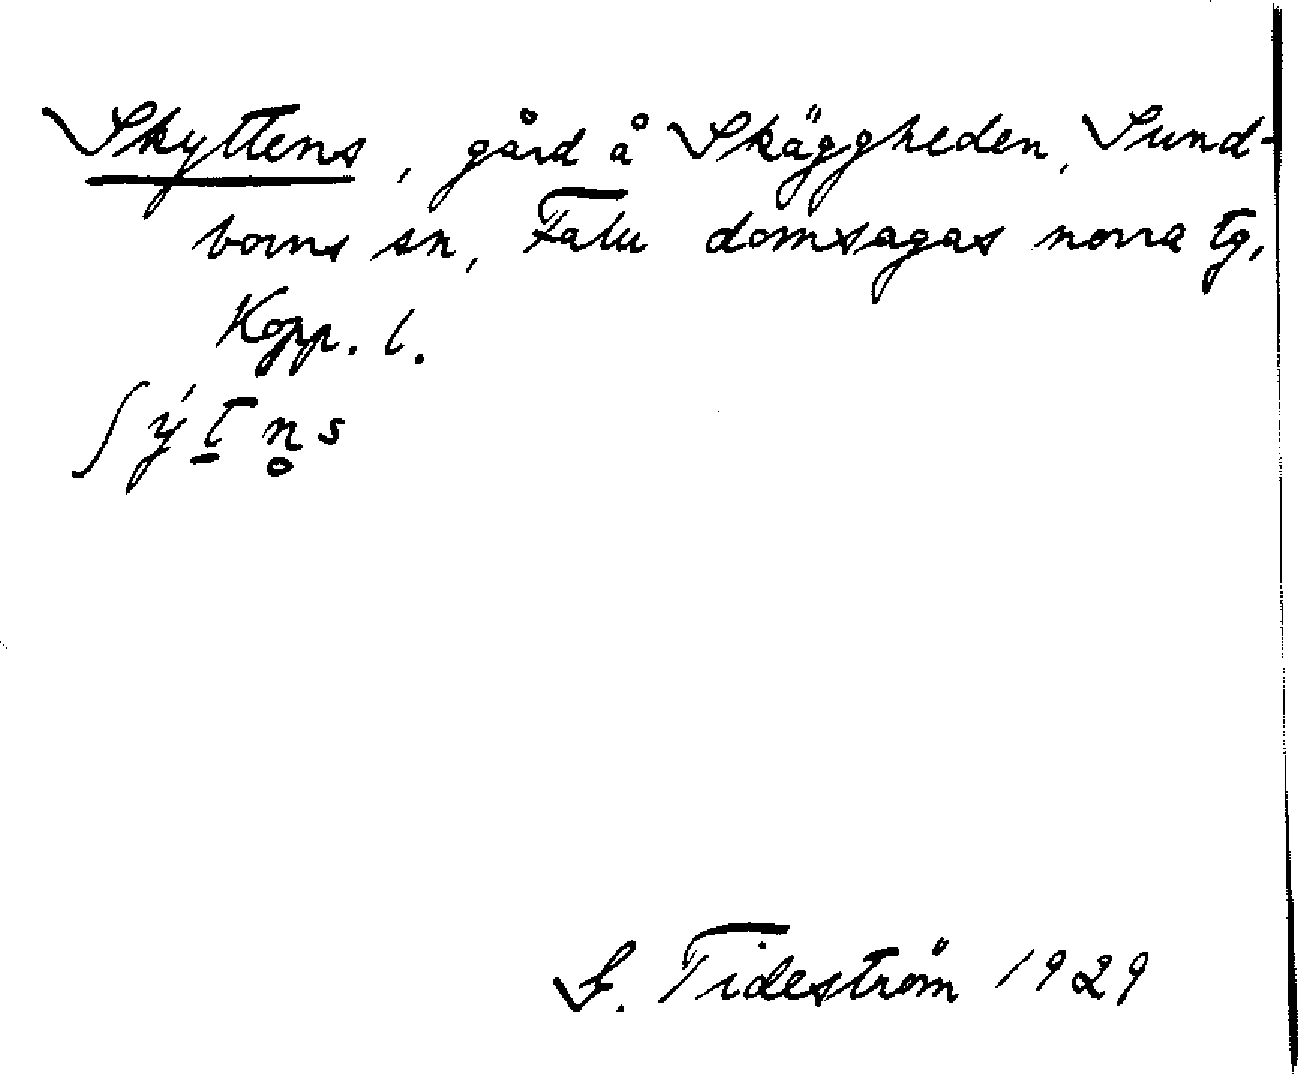 Skyttens, gård å Skäggheden, Sund-
borns sn, Falu domsagas norra tg,
Kopp. l.
ʃýt̲n̥s
S. Tideström 1929